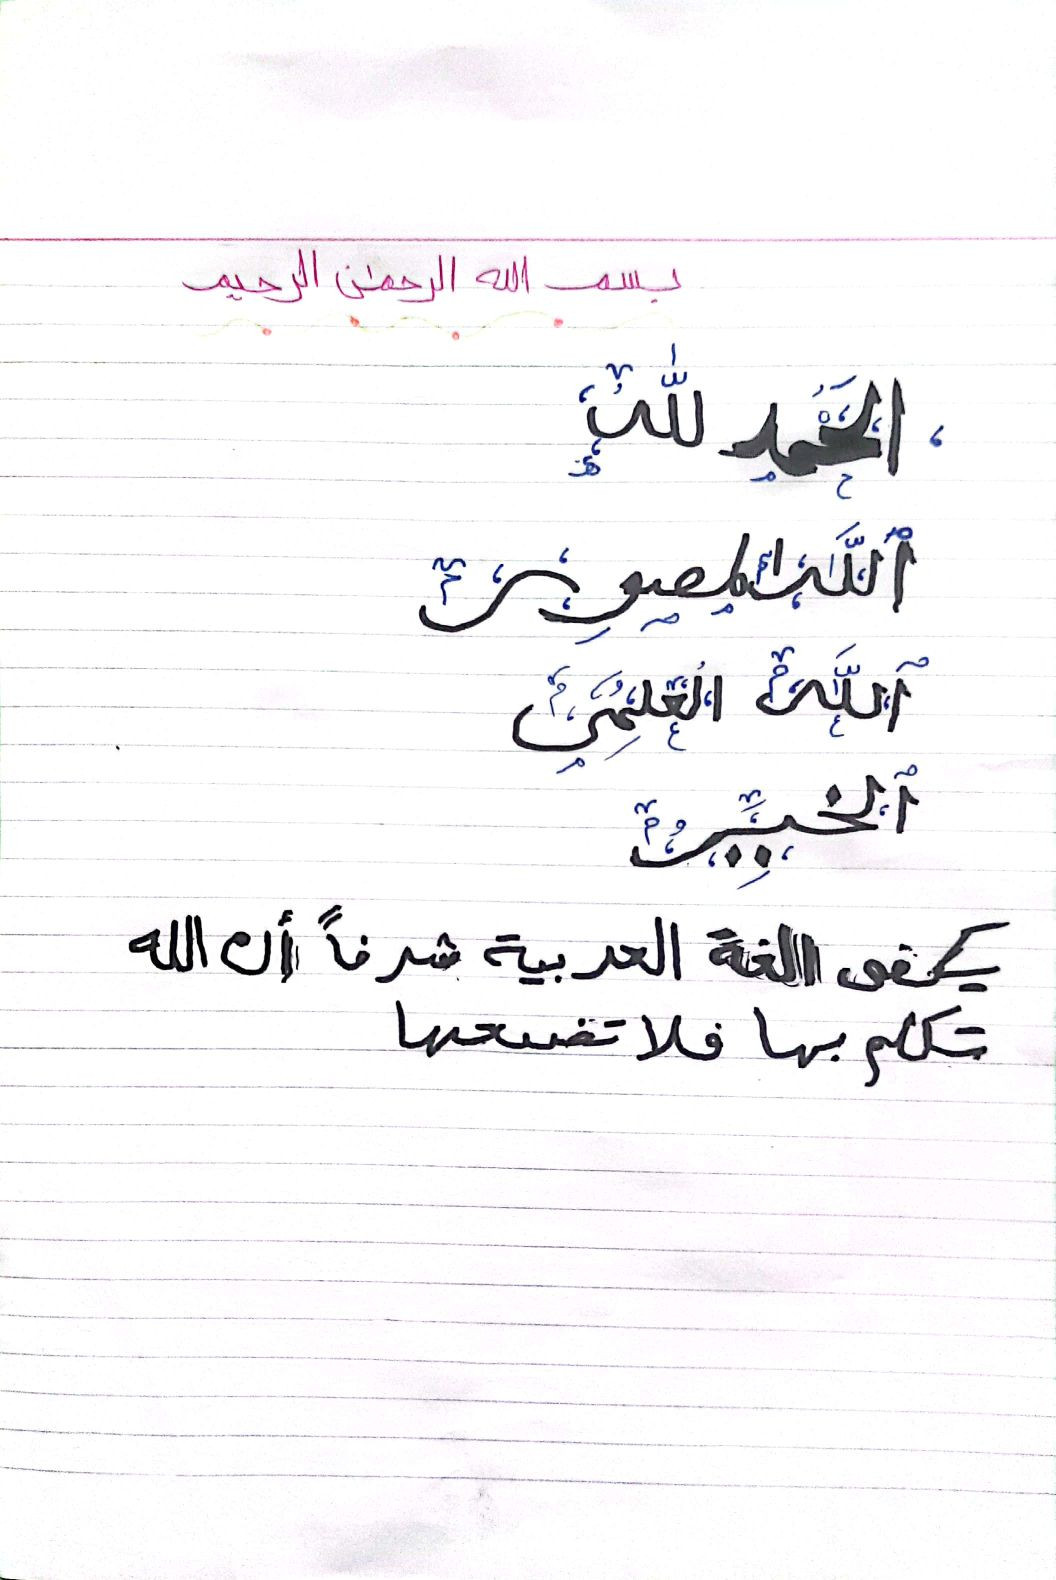 بسم الله الرحمٰن الرحيم
الحَمْدُ للّٰه
ٱللَّه المصور
ٱللَّه العليم
ٱلخبير
يكفى اللغة العربية شرفاً أن الله
تكلم بها فلا تضيعها